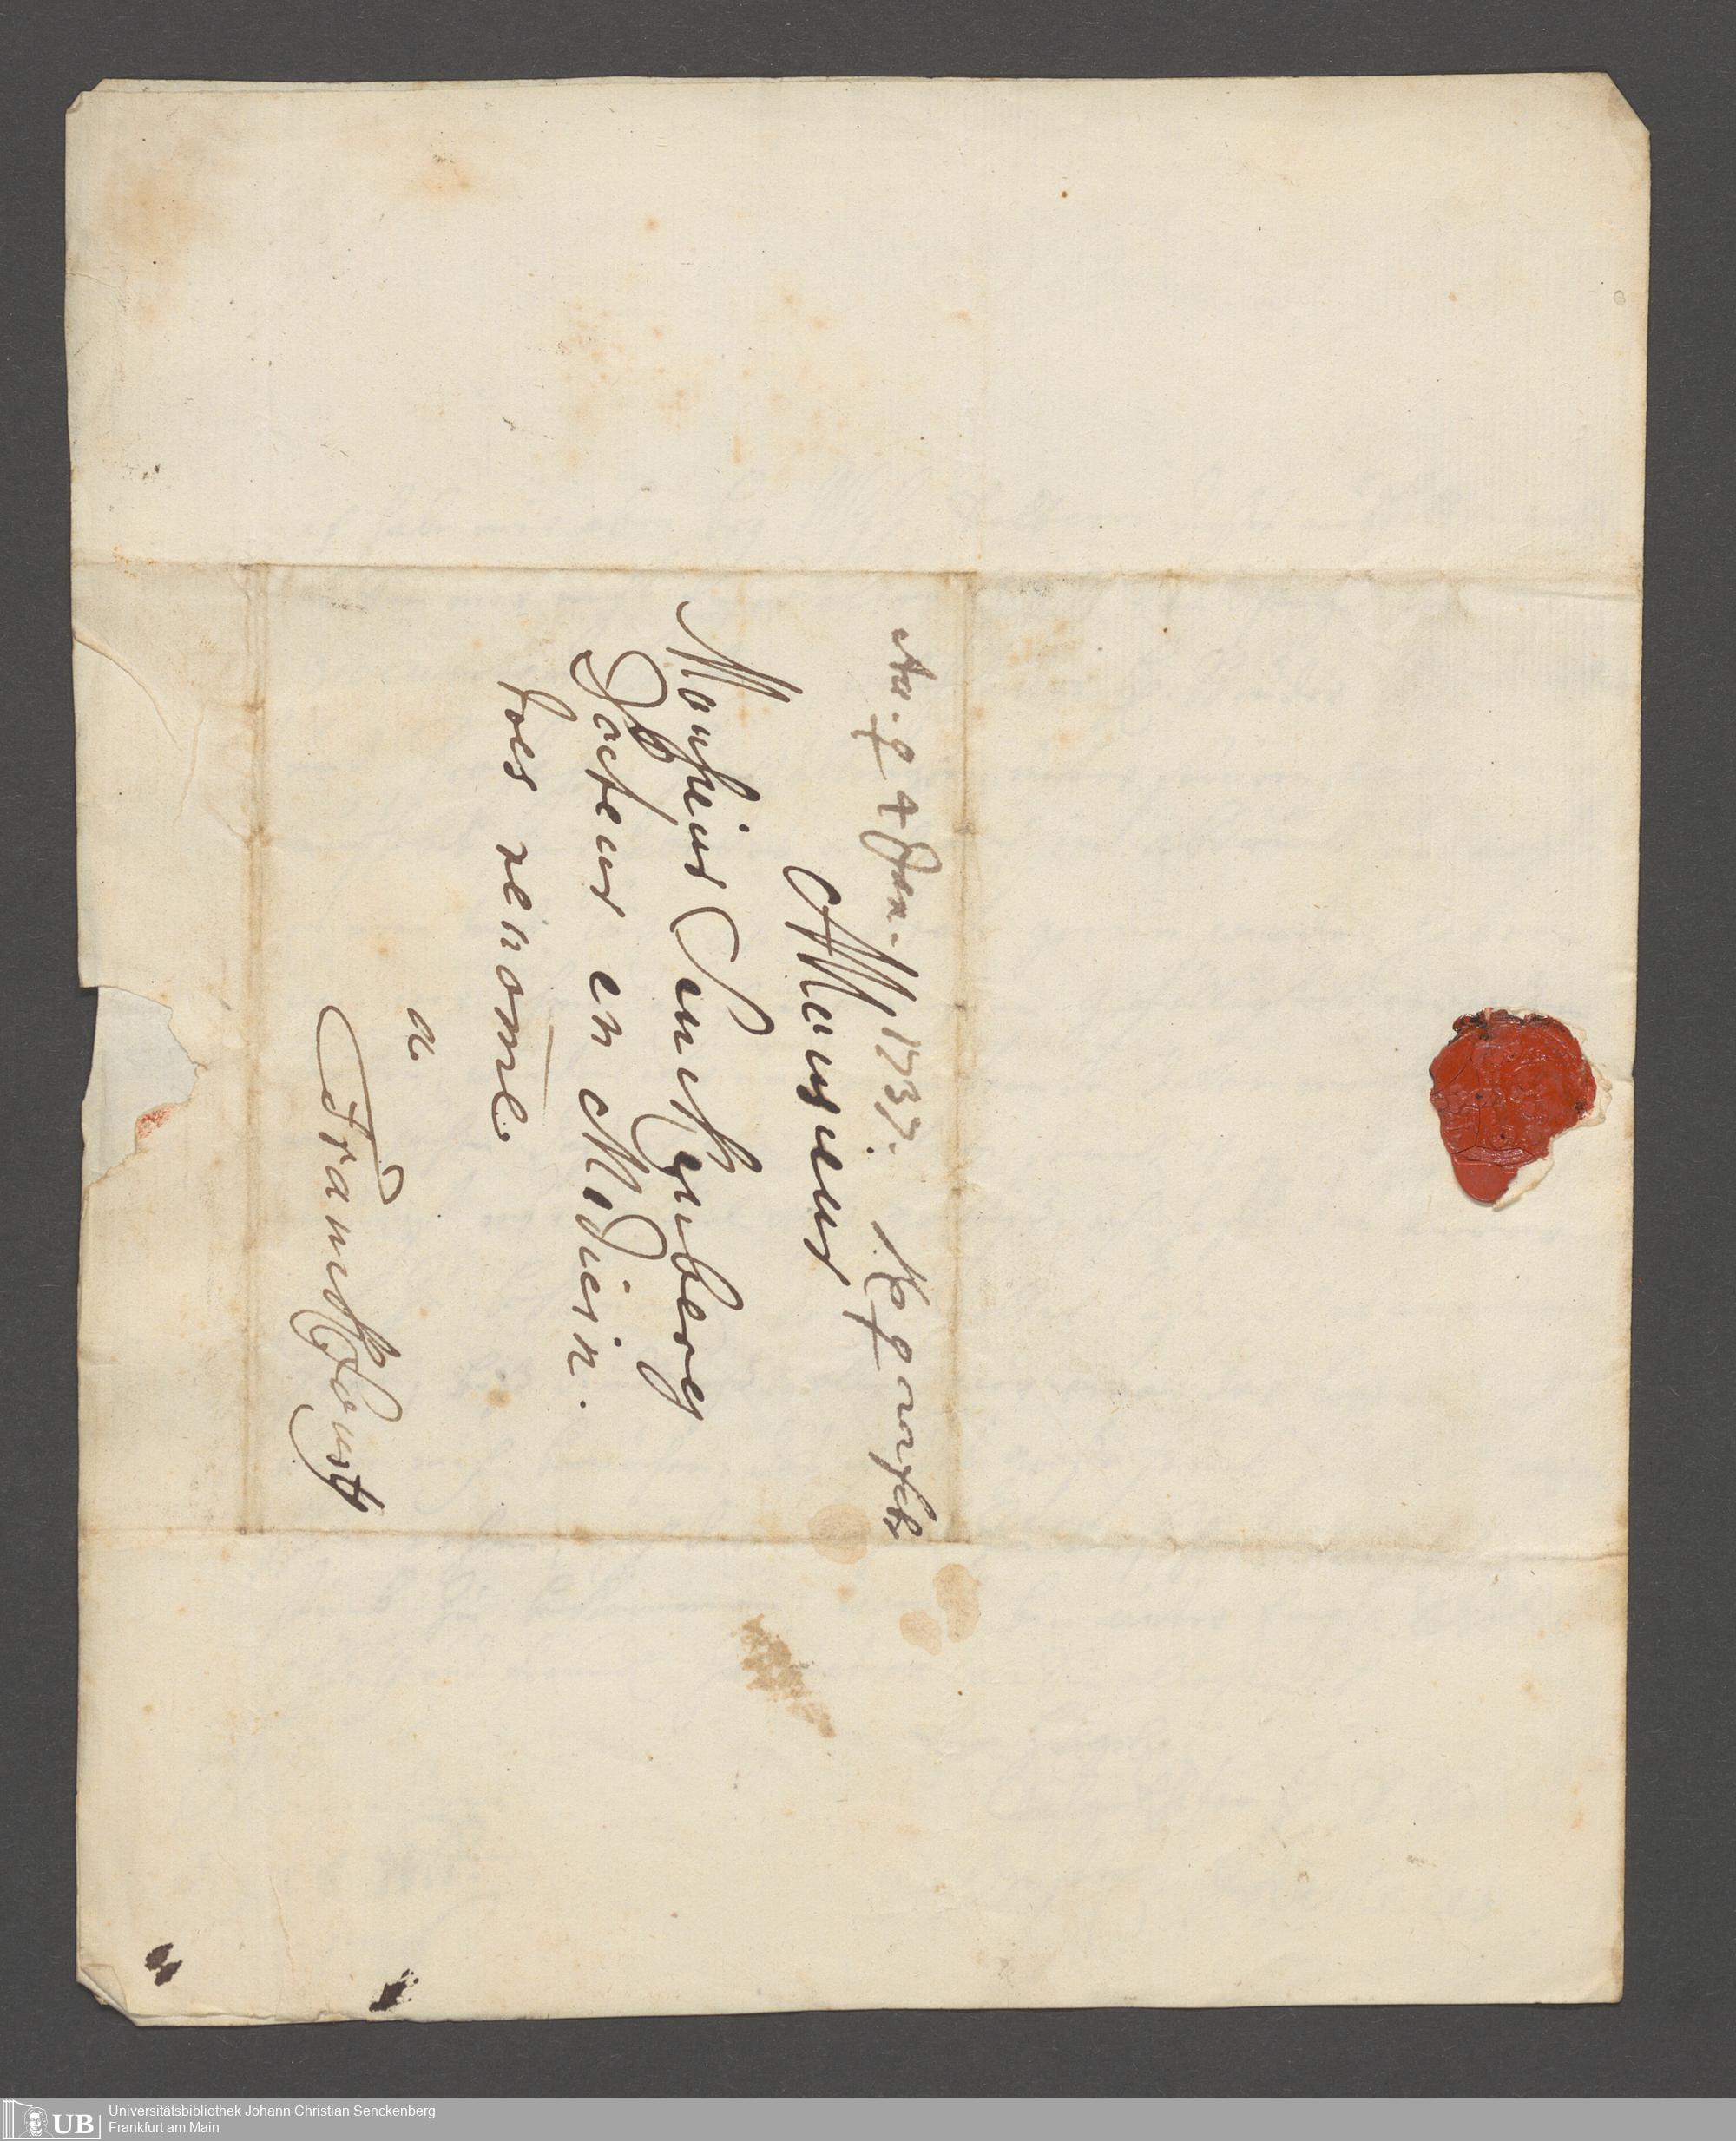 4 Jan. 1737.
Monsieur
Monsieur Senckenberg
Docteur en Medicin.
tres renome
a
Franckfourtt
UB
Universitätsbibliothek Johann Christian Senckenberg
Frankfurt am Main